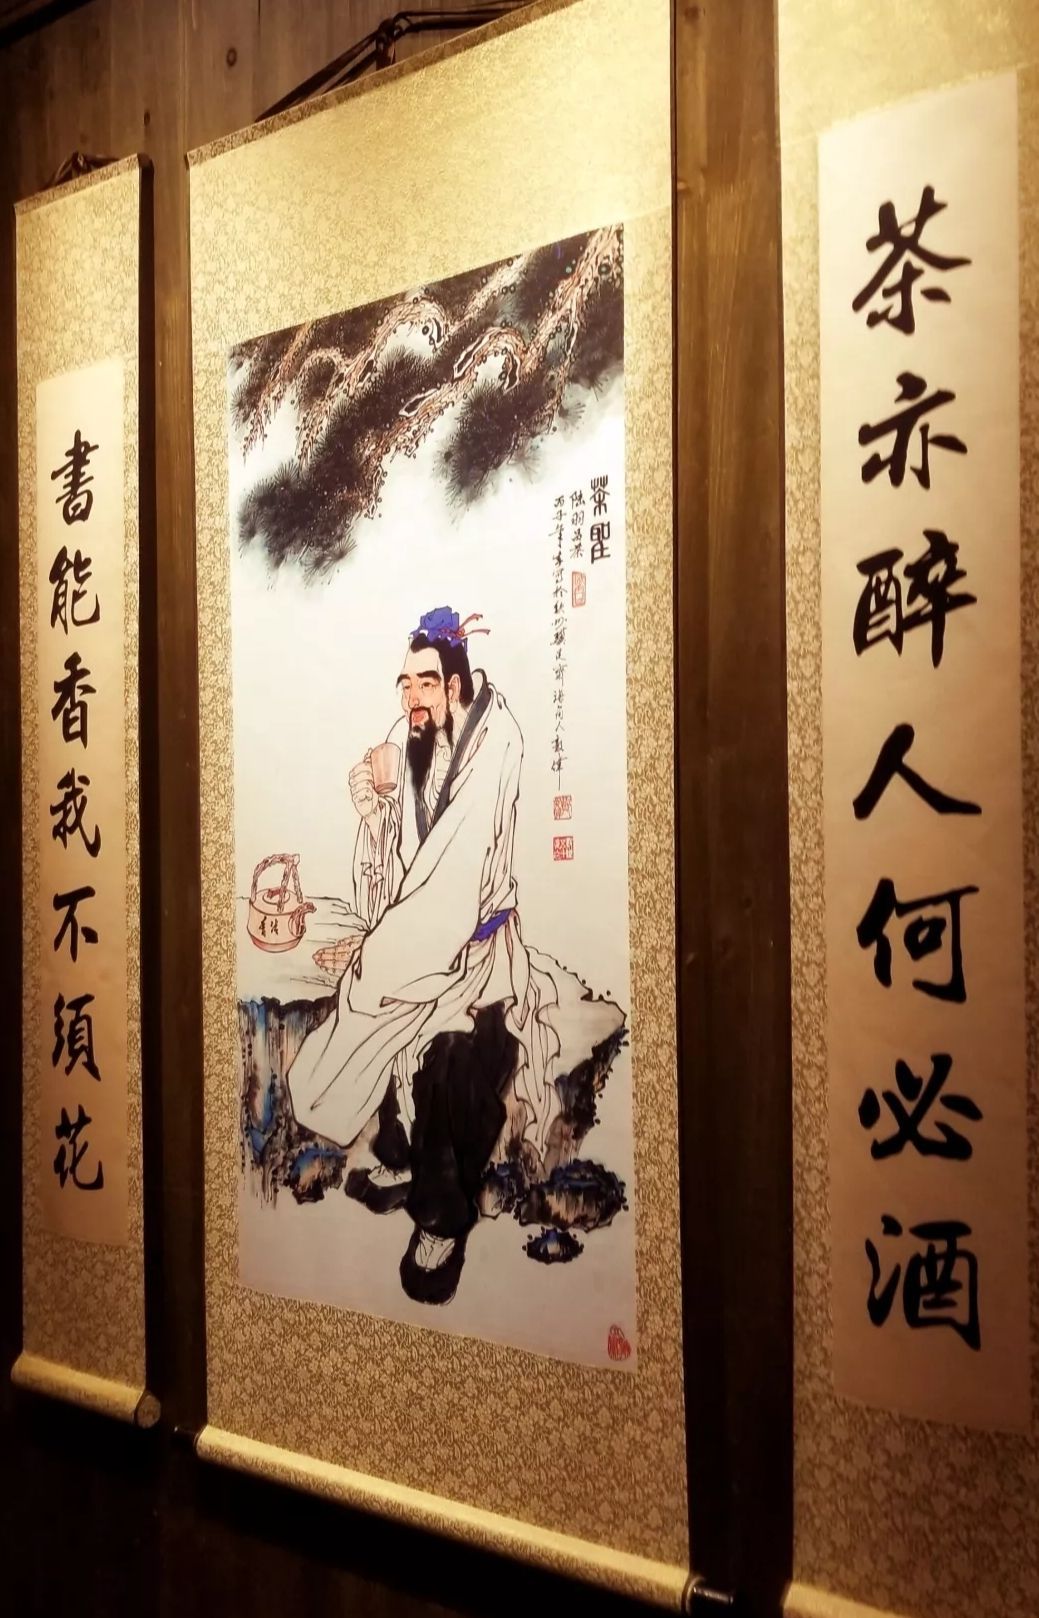 茶亦醉人何必酒
茶聖
陸羽品茶
書能香我不須花